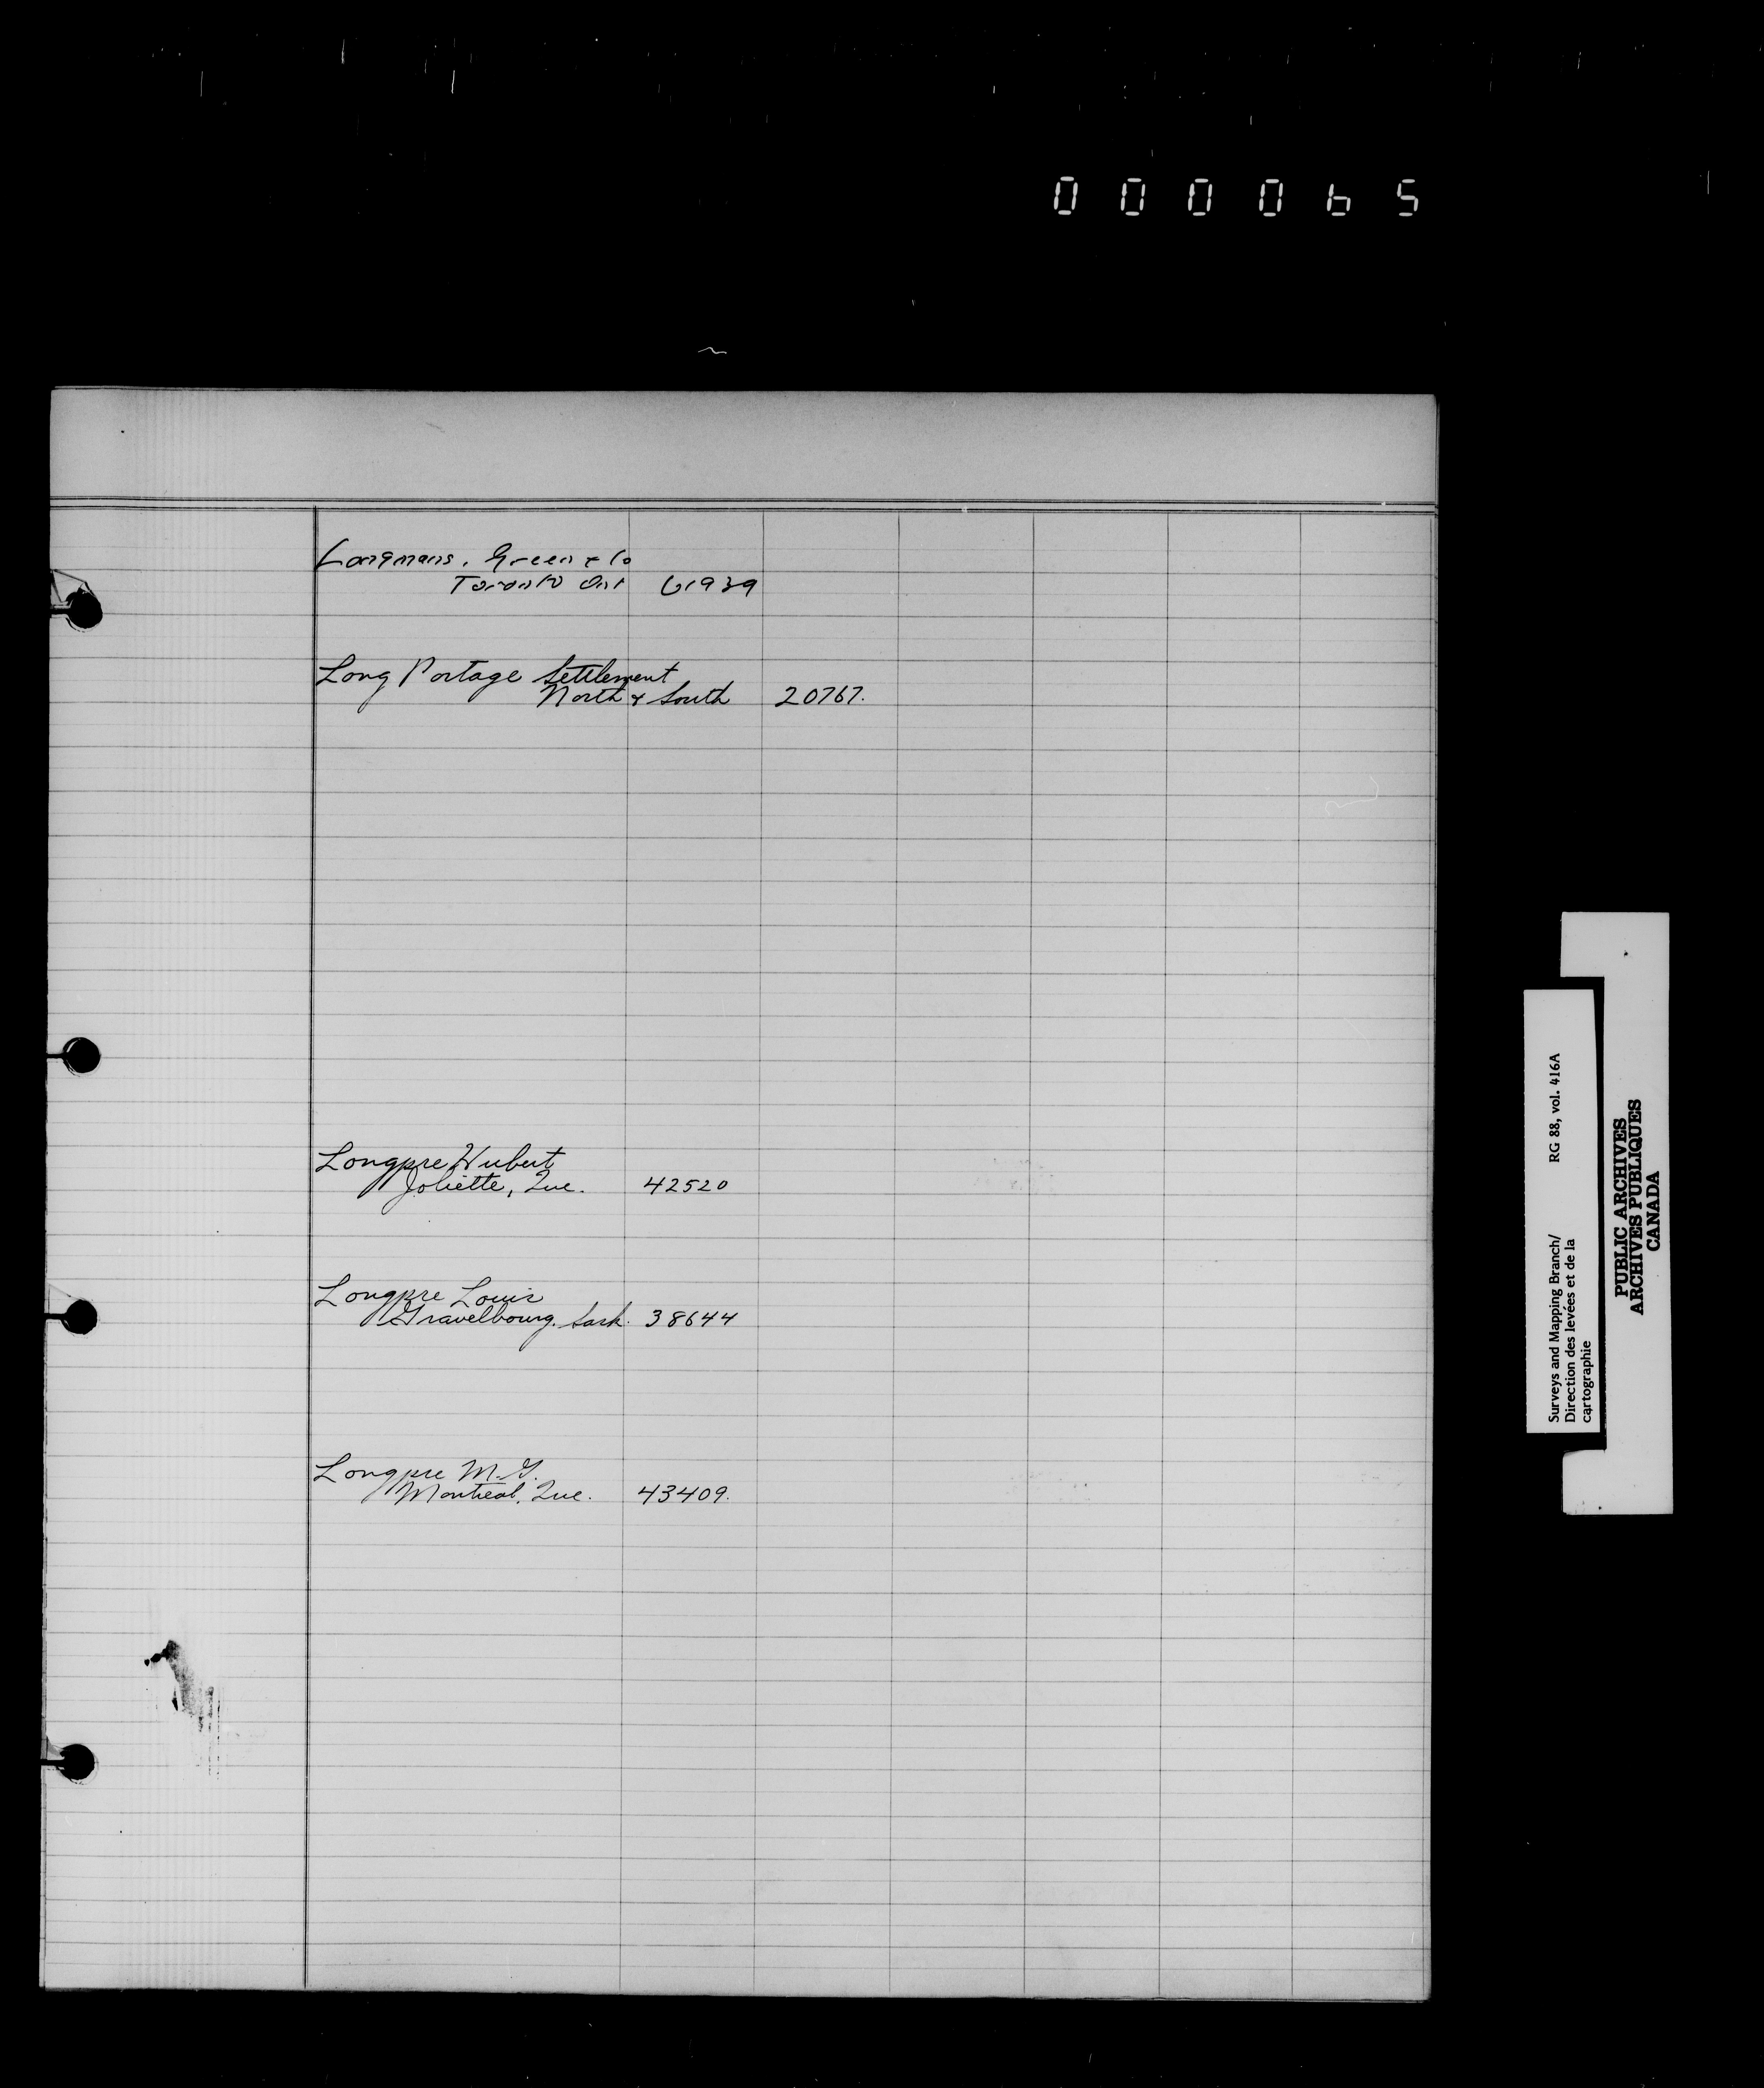 000065
Longmans, Green & Co
Toronto Ont 61939
Long Portage Settlement
North & South 20767.
Longpre Hubert
Joliette, Que. 42520
Longpre Louis
Gravelbourg. Sask. 38644
Longpre M. G.
Montreal, Que. 43409.
Surveys and Mapping Branch/ RG 88, vol. 416A
Direction des levées et de la
cartographie
PUBLIC ARCHIVES
ARCHIVES PUBLIQUES
CANADA